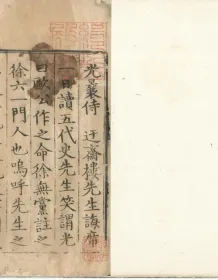 光曩侍　迂齋樓先生誨席
一日讀五代史先生笑謂光
曰歐公作之命徐無黨註之
徐六一門人也嗚呼先生之